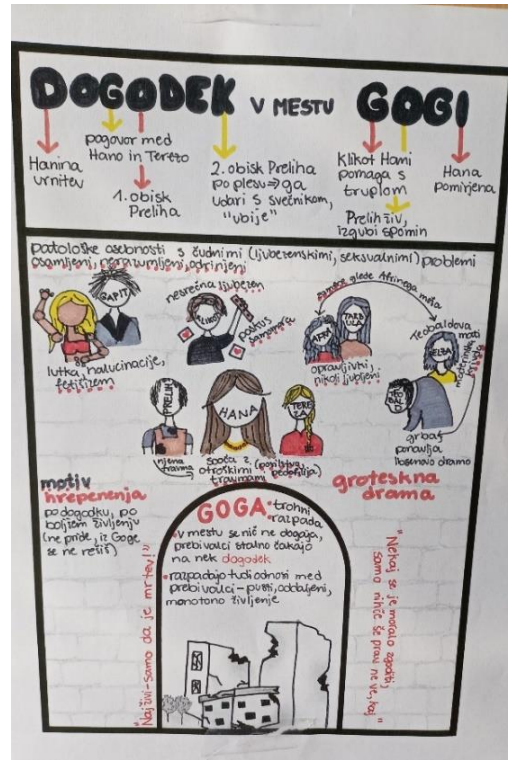 DOGODEK V MESTU GOGI
Hanina
vrnitev
pogovor med
Hano in Terezo
1. obisk
Preliha
2. obisk Preliha
po plesu => ga
udari s svečnikom,
"ubije"
Klikot Hani
pomaga s
truplom
Prelih živ,
izgubi spomin
Hana
pomirjena
patološke osebnosti s čudnimi (ljubezenskimi, seksualnimi) problemi
osamljeni, nerazumljeni, odrinjeni
GAPIT
lutka, halucinacije,
fetišizem
nesrečna ljubezen
KLIKOT
poskus
samomora
AFRA
TARBULA
opravljivki,
nikoli ljubljeni
Teobaldova
mati
ELZA
TEOBALD
grbav
ponavlja
Ibsenovo dramo
PRELIH
HANA
TEREZA
njena
travma
sooča z
otroškimi
travmami
motiv
hrepenenja
po dogodku, po
boljšem življenju
(ne pride, iz Goge
se ne rešiš)
groteskna
drama
GOGA
trohni
razpada
v mestu se nič ne dogaja,
prebivalci stalno čakajo
na nek dogodek
razpadajo tudi odnosi med
prebivalci - pusti, oddaljeni,
monotono življenje
"Naj živi - samo da je mrtev!"
"Nekaj se je moralo zgoditi,
samo nihče še prav ne ve, kaj"